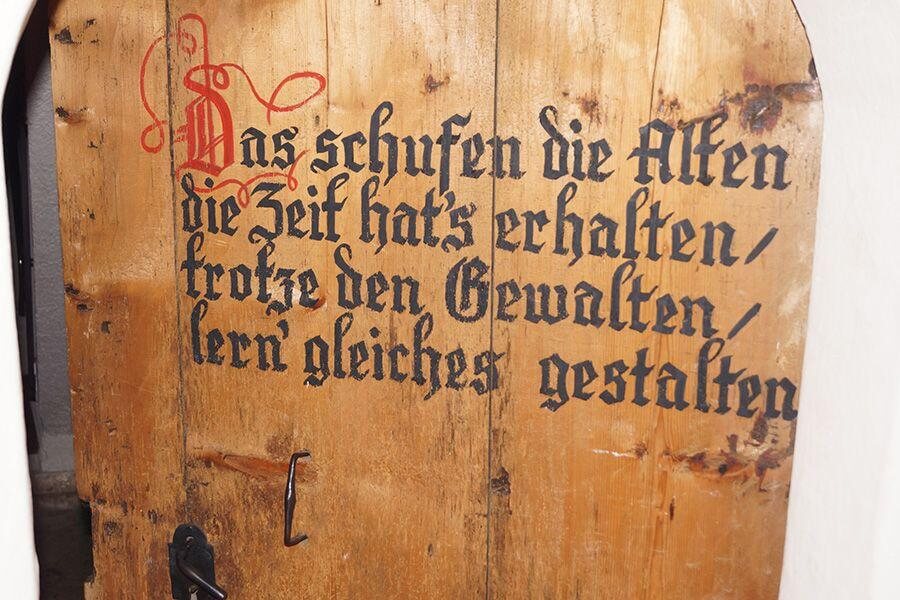 Das schufen die Alten
die Zeit hat's erhalten/
trotze den Gewalten/
lern' gleiches gestalten